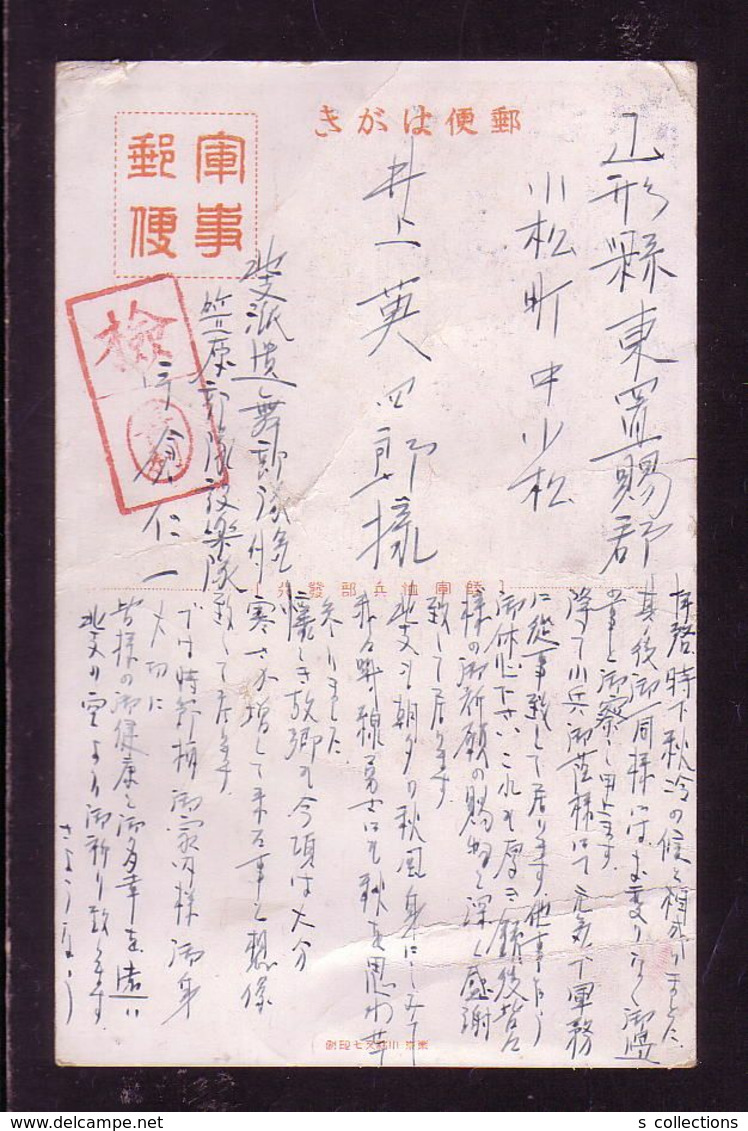 郵便はがき
軍事郵便
山形縣東置賜郡
小松町中小松
井上英四郎様
北支派遣舞部隊気付
笠原部隊設楽隊
仁一
検
陸軍恤兵部發行
拝啓時下秋冷の候と相成りました
其後御一同様には お変りなく御壮
の事と御察し申上ます
降て小兵御蔭様にて元気で軍務
に從事致して居ります 他事なく
御休心下さい これも厚き銃後皆々
様の御祈願の賜物と深く感謝
致して居ります
北支も朝夕の秋風身にしみて
我々第一線勇士にも秋を思わせ
参りました
懐しき故郷も今頃は大分
寒さが増して来る事と想像
致して居ります
では時節柄御家内様御身
大切に
皆様の御健康と御多幸を遠い
北支の空より御祈り致します
さようなら
s collections